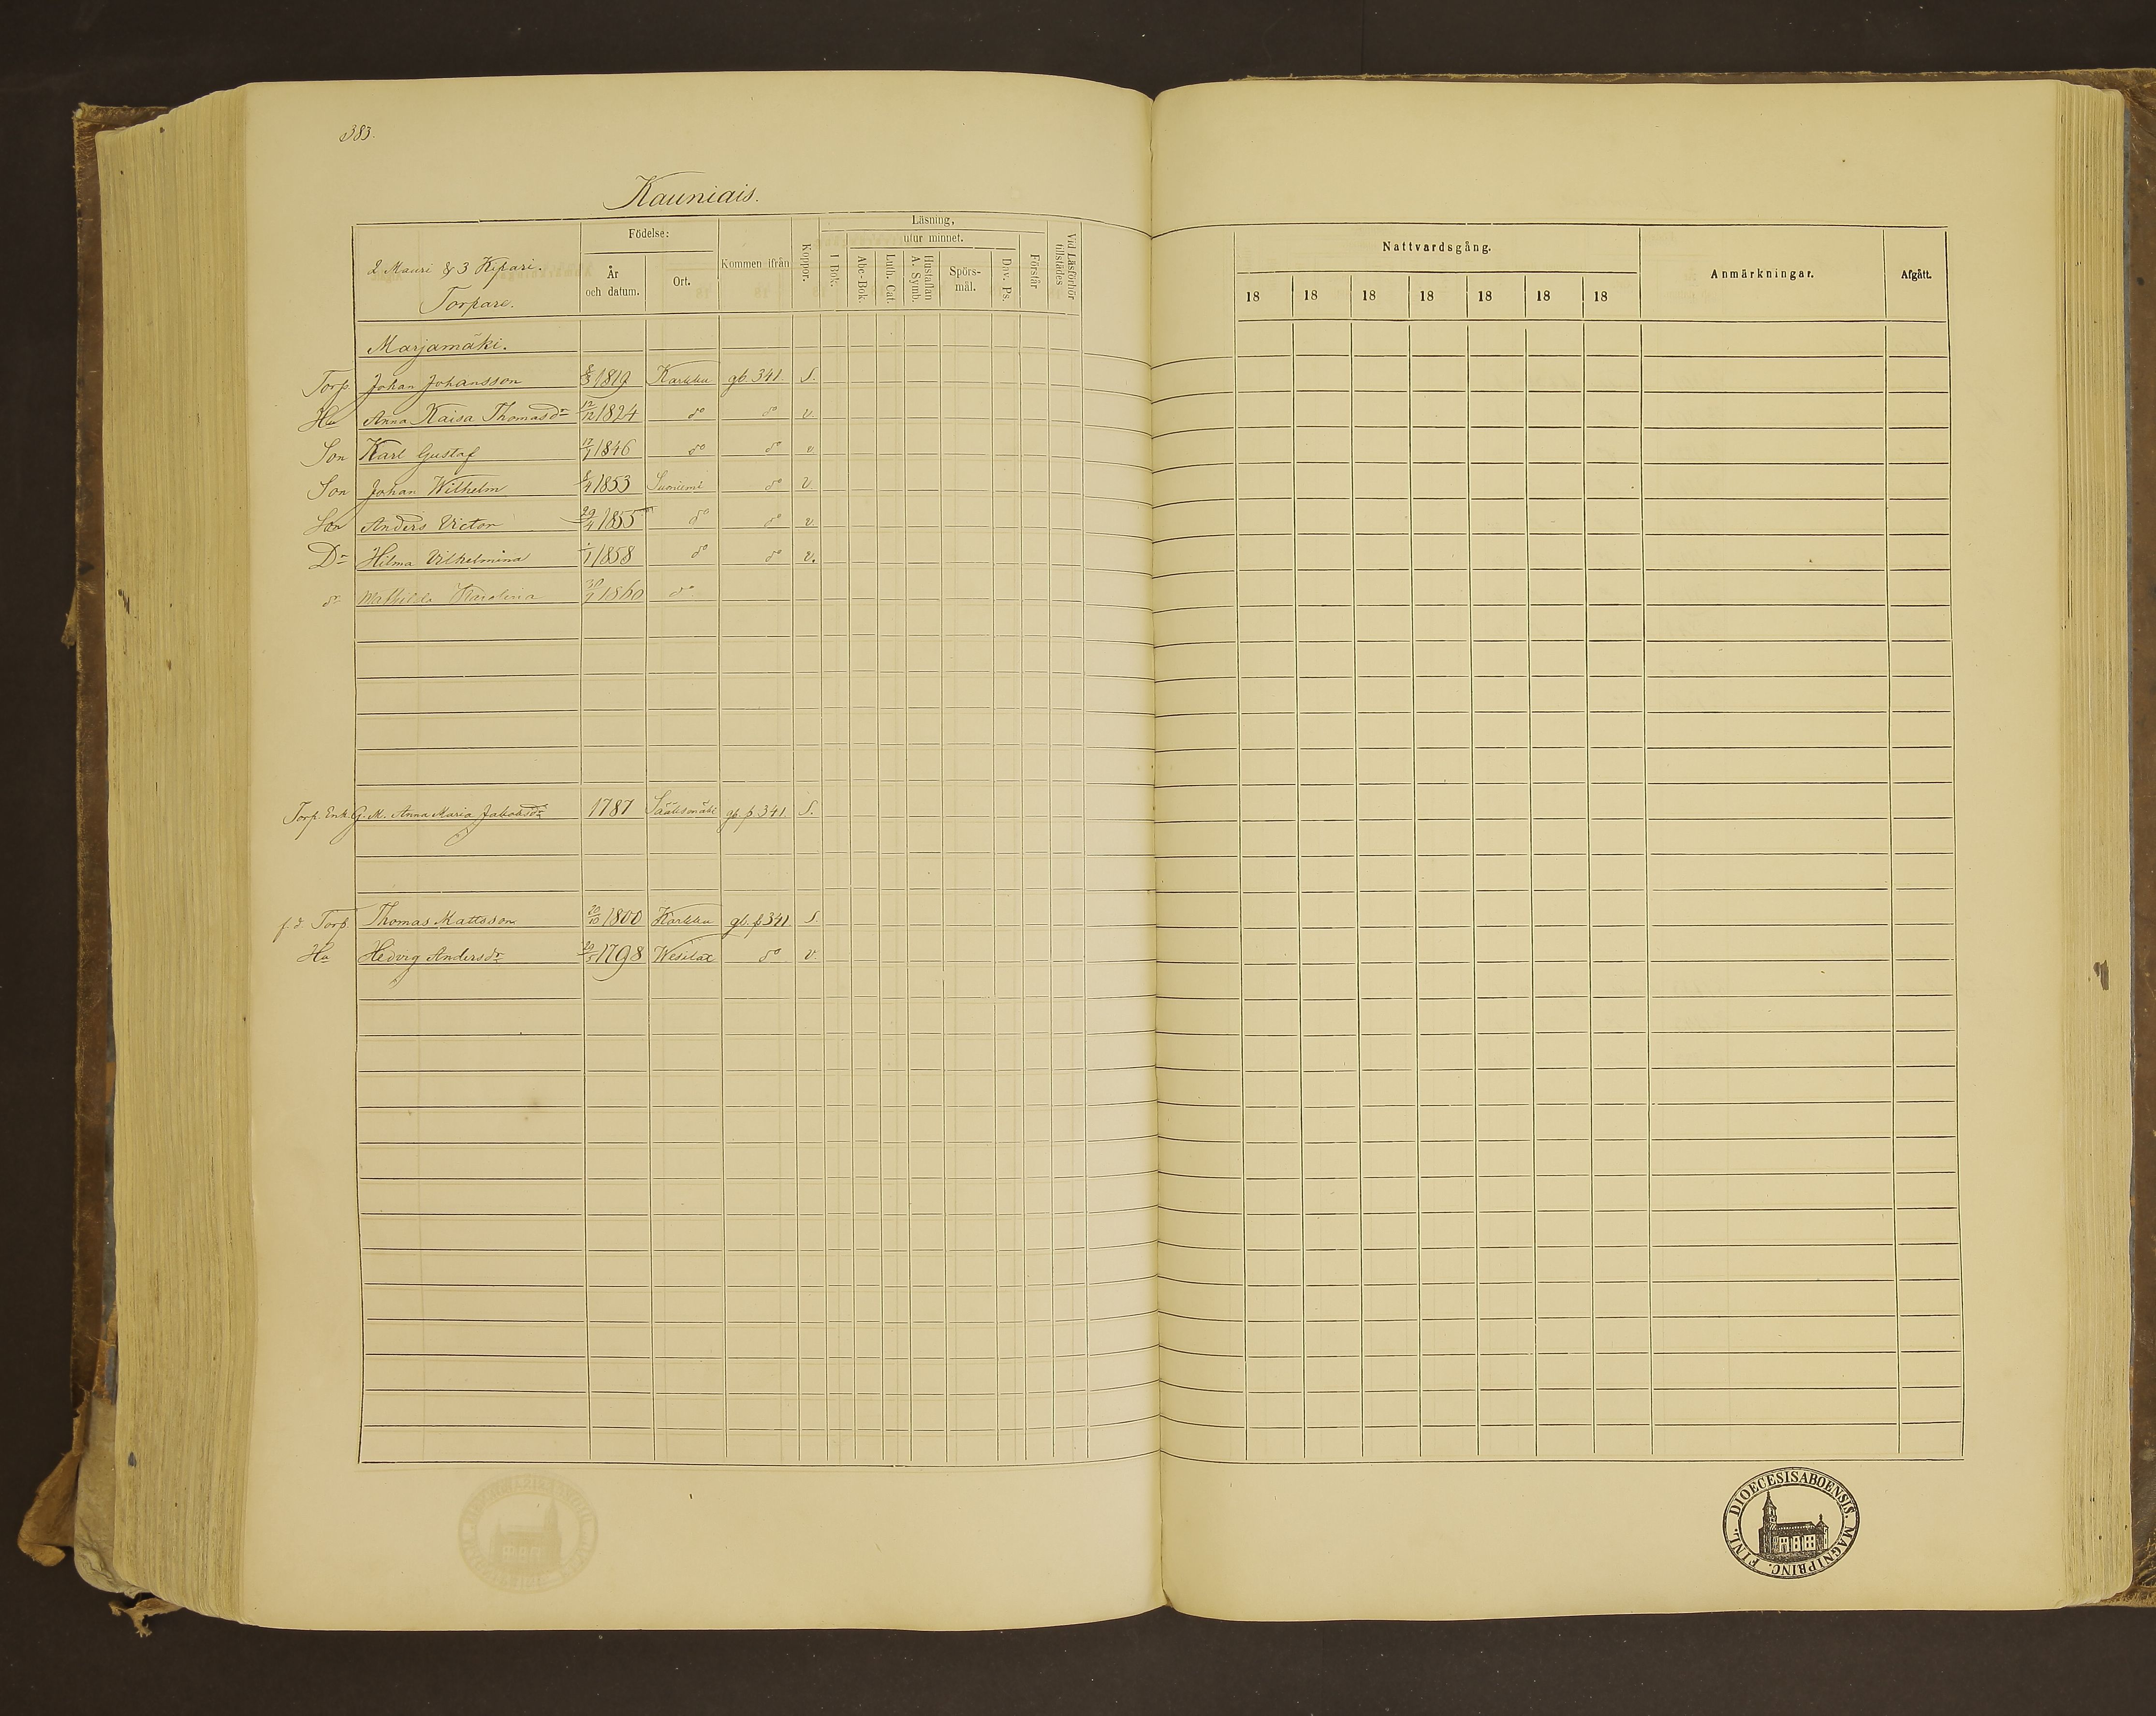 383.
Kauniais.
2 Mauri & 3 Kipari.
Torpare.
Födelse:
År och datum.
Ort.
Kommen ifrån
Koppor.
Läsning,
utur minnet.
I Bok.
Abc-Bok.
Luth. Cat.
Hustaflan A. Symb.
Spörs-mål.
Dav. Ps.
Förstår
Vid Läsförhör tillstädes
Nattvardsgång.
18 18 18 18 18 18 18
Anmärkningar.
Afgått.
Marjamäki.
Torp. Johan Johansson 8/3 1819 Karkku gb. 341. S.
Hu Anna Kaisa Thomasdr 12/12 1824 do do v.
Son Karl Gustaf 17/1 1846 do do v.
Son Johan Wilhelm 8/4 1853 Suoniemi do v.
Son Anders Victor 29/4 1855 do do v.
Dr Hilma Vilhelmina 1/1 1858 do do v.
dr Mathilda Karolina 1860 do
Torp. Enk. G. M. Anna Maria Jakobsdr 1787 Sääksmäki gb. p 341. S.
f. d. Torp. Thomas Mattsson 20/10 1800 Karkku gb. p 341. S.
Hu Hedvig Andersdr 29/5 1798 Wesilax do v.
DIOECESIS ABOENSIS. MAGNI PRINC. FINL.